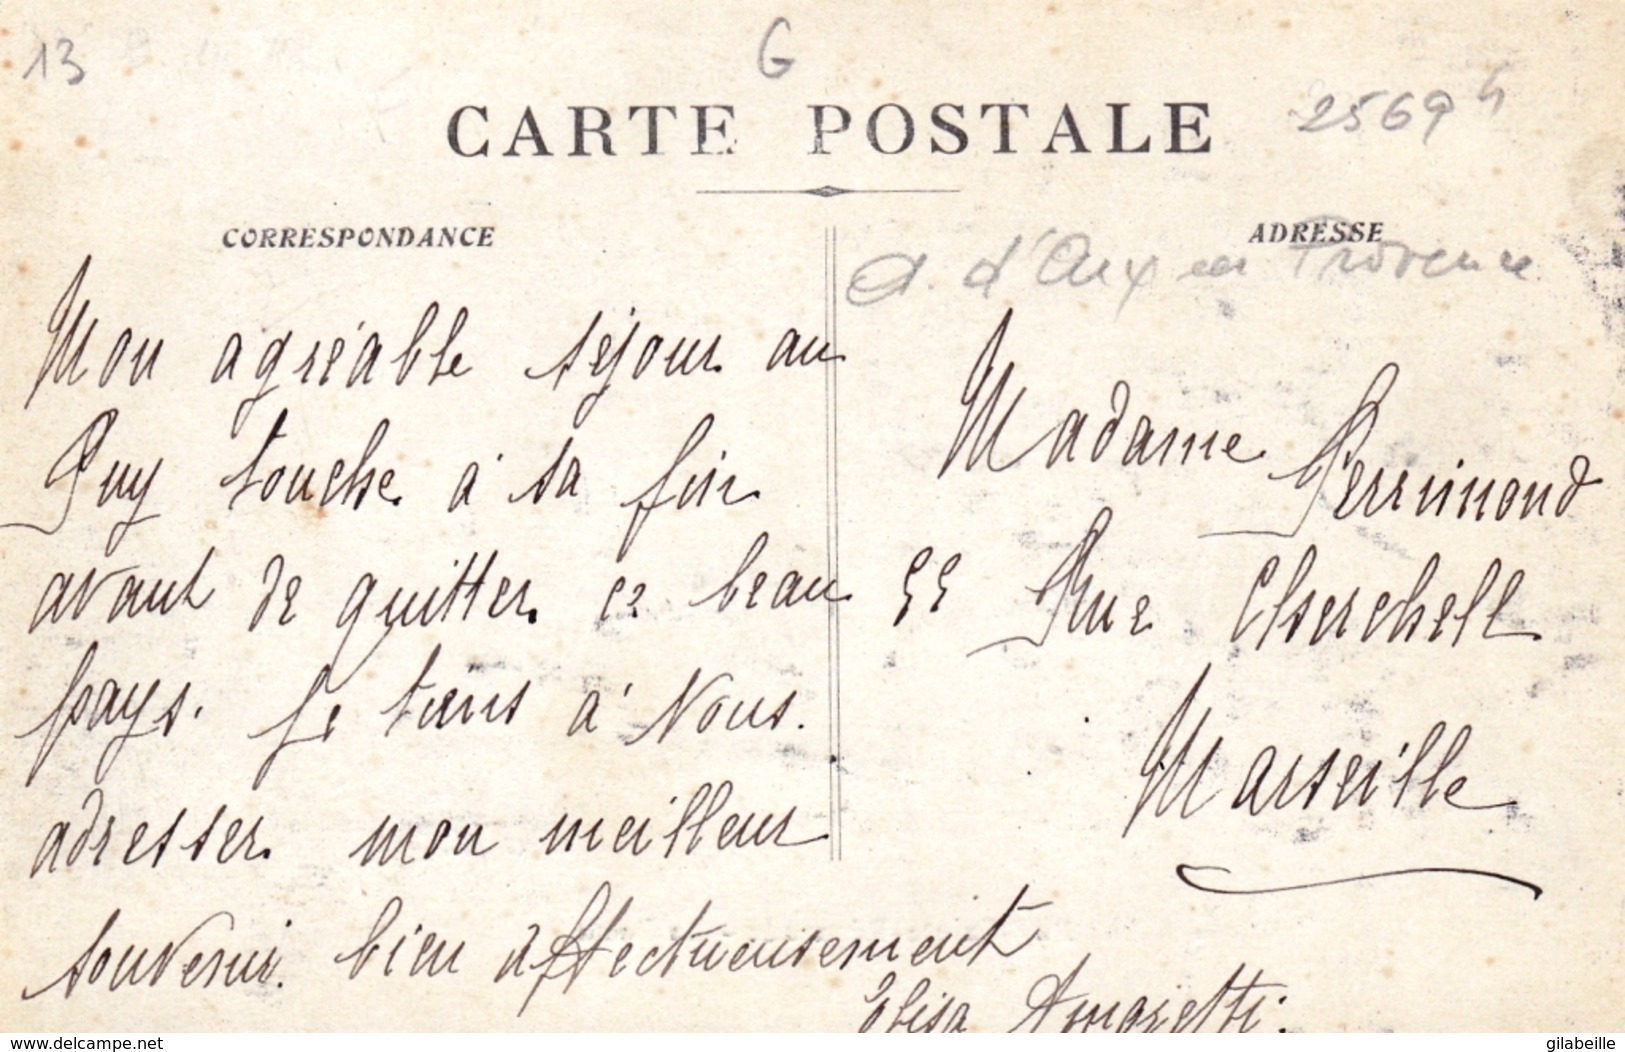 13
G
CARTE POSTALE
25694
CORRESPONDANCE
ADRESSE
d'Aix en Provence
Mon agréable séjour au
Puy touche à sa fin
avant de quitter ce beau
pays. Je tiens à Vous.
adresser mon meilleur
souvenir. bien affectueusement
Elisa Amoretti.
Madame Perrimond
55 Rue Cherchell
Marseille
www.delcampe.net
gilabeille